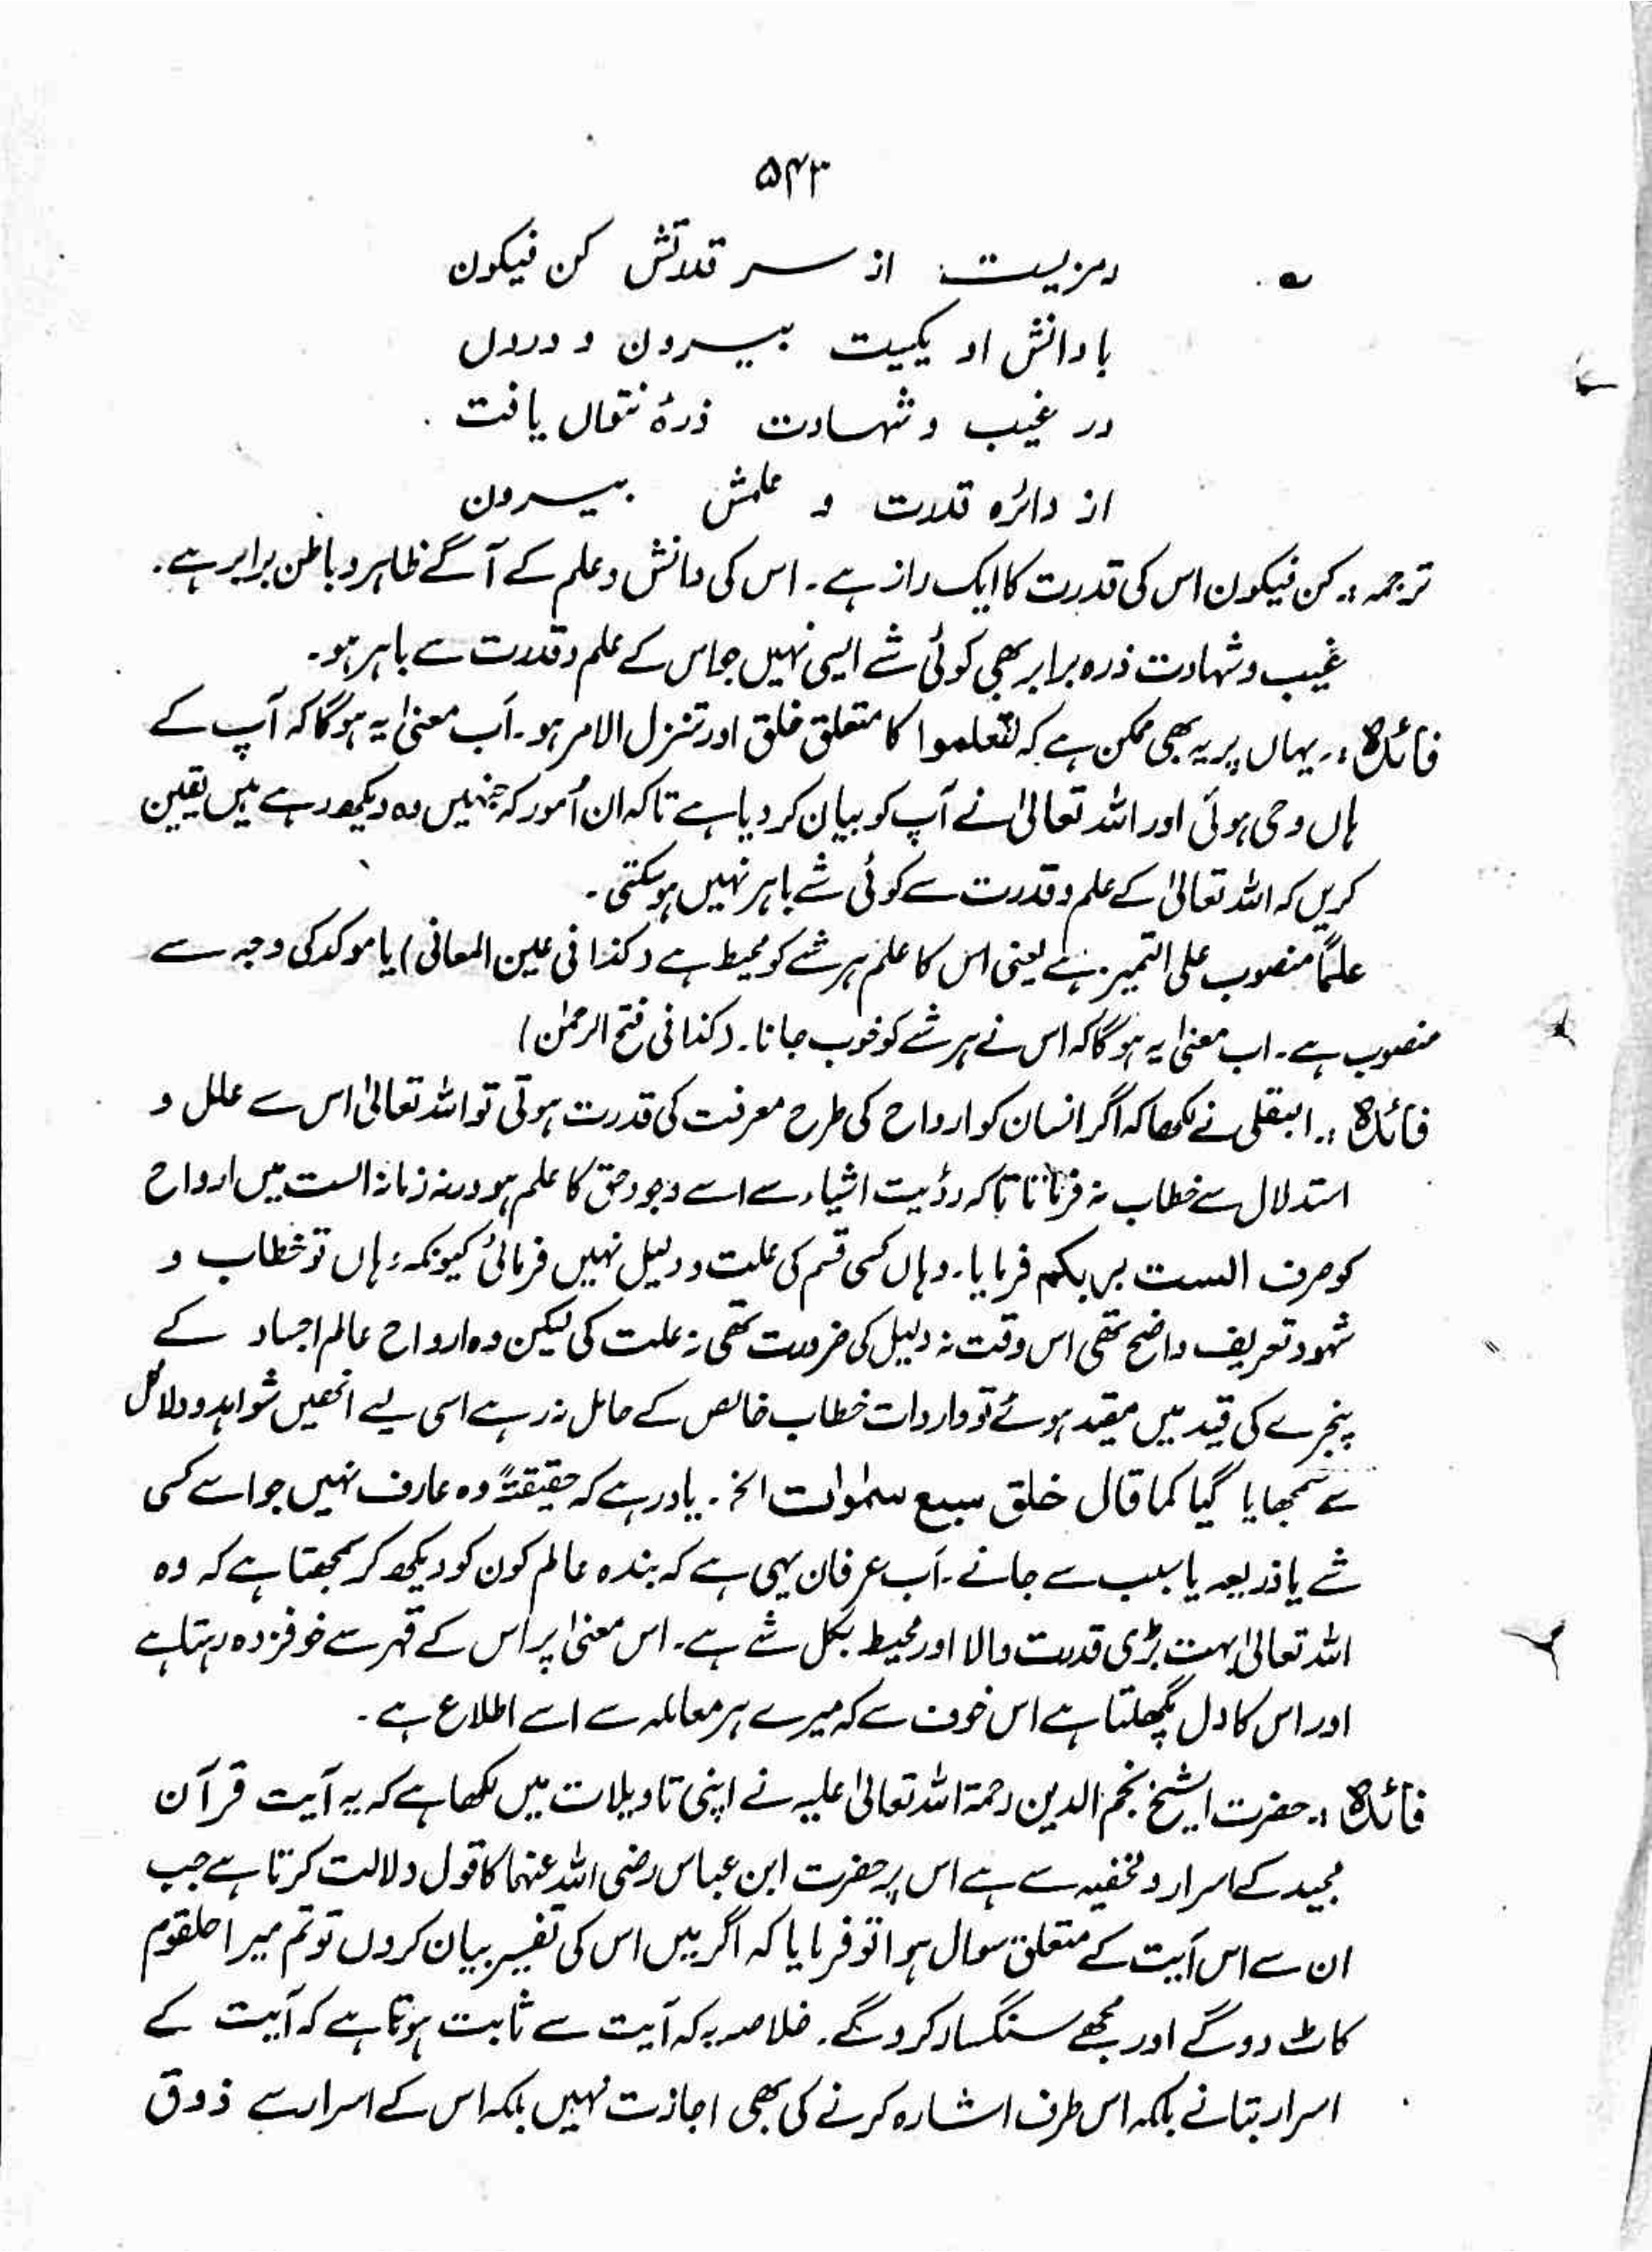 ۵۴۳
رمزیست از سر قدرتش کن فیکون
با دانش او یکیت بیرون و درون
در غیب و شہادت ذرہ نتواں یافت
از دائرہ قدرت و علمش بیرون
ترجمہ :۔ کن فیکون اس کی قدرت کا ایک راز ہے ۔ اس کی دانش و علم کے آگے ظاہر و باطن برابر ہے ۔
غیب و شہادت ذرہ برابر بھی کوئی شے ایسی نہیں جو اس کے علم و قدرت سے باہر ہو ۔
فائدہ :۔ یہاں پر یہ بھی ممکن ہے کہ لتعلموا کا متعلق خلق اور تنزل الامر ہو ۔ اَب معنیٰ یہ ہوگا کہ آپ کے
ہاں وحی ہوئی اور اللہ تعالیٰ نے آپ کو بیان کر دیا ہے تاکہ ان اُمور کہ جنہیں وہ دیکھ رہے ہیں یقین
کریں کہ اللہ تعالیٰ کے علم و قدرت سے کوئی شے باہر نہیں ہو سکتی ۔
علماً منصوب علی التمیز ہے یعنی اس کا علم ہر شے کو محیط ہے (کذا فی عین المعانی) یا موکد کی وجہ سے
منصوب ہے ۔ اب معنیٰ یہ ہوگا کہ اس نے ہر شے کو خوب جانا ۔ (کذا فی فتح الرحمٰن)
فائدہ :۔ البقلی نے لکھا کہ اگر انسان کو ارواح کی طرح معرفت کی قدرت ہوتی تو اللہ تعالیٰ اس سے علل و
استدلال سے خطاب نہ فرماتا تاکہ رؤیت اشیاء سے اسے وجود حق کا علم ہو ورنہ زمانۂ الست میں ارواح
کو صرف الست بربکم فرمایا ۔ وہاں کسی قسم کی علت و دلیل نہیں فرمائی کیونکہ وہاں تو خطاب و
شہود تعریف واضح تھی اس وقت نہ دلیل کی ضرورت تھی نہ علت کی لیکن وہ ارواح عالم اجساد کے
پنجرے کی قید میں مقید ہوئے تو واردات خطاب خالص کے حامل نہ رہے اسی لیے انھیں شواہد و دلائل
سے سمجھایا گیا کما قال خلق سبع سمٰوات الخ ۔ یاد رہے کہ حقیقتہً وہ عارف نہیں جو اسے کسی
شے یا ذریعہ یا سبب سے جانے ۔ اَب عرفان یہی ہے کہ بندہ عالم کون کو دیکھ کر سمجھتا ہے کہ وہ
اللہ تعالیٰ بہت بڑی قدرت والا اور محیط بکل شے ہے ۔ اس معنیٰ پر اس کے قہر سے خوفزدہ رہتا ہے
اور اس کا دل پگھلتا ہے اس خوف سے کہ میرے ہر معاملہ سے اسے اطلاع ہے ۔
فائدہ :۔ حضرت الشیخ نجم الدین رحمۃ اللہ تعالیٰ علیہ نے اپنی تاویلات میں لکھا ہے کہ یہ آیت قرآن
مجید کے اسرار و مخفیہ سے ہے اس پر حضرت ابن عباس رضی اللہ عنہما کا قول دلالت کرتا ہے جب
ان سے اس آیت کے متعلق سوال ہوا تو فرمایا کہ اگر میں اس کی تفسیر بیان کروں تو تم میرا حلقوم
کاٹ دو گے اور مجھے سنگسار کرو گے ۔ خلاصہ یہ کہ آیت سے ثابت ہوتا ہے کہ آیت کے
اسرار بتانے بلکہ اس طرف اشارہ کرنے کی بھی اجازت نہیں بلکہ اس کے اسرار سے ذوق